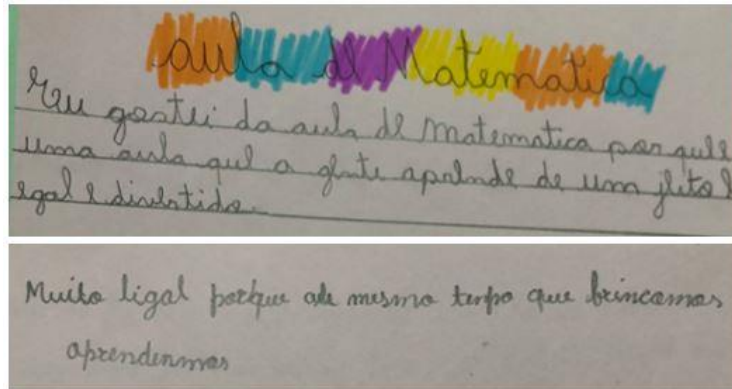 aula de Matematica
Eu gostei da aula de matematica por que e
uma aula que a gente aprende de um jeito l
egal e divertido.
Muito ligal porque ale mesmo tenpo que brincamos
aprendenmos